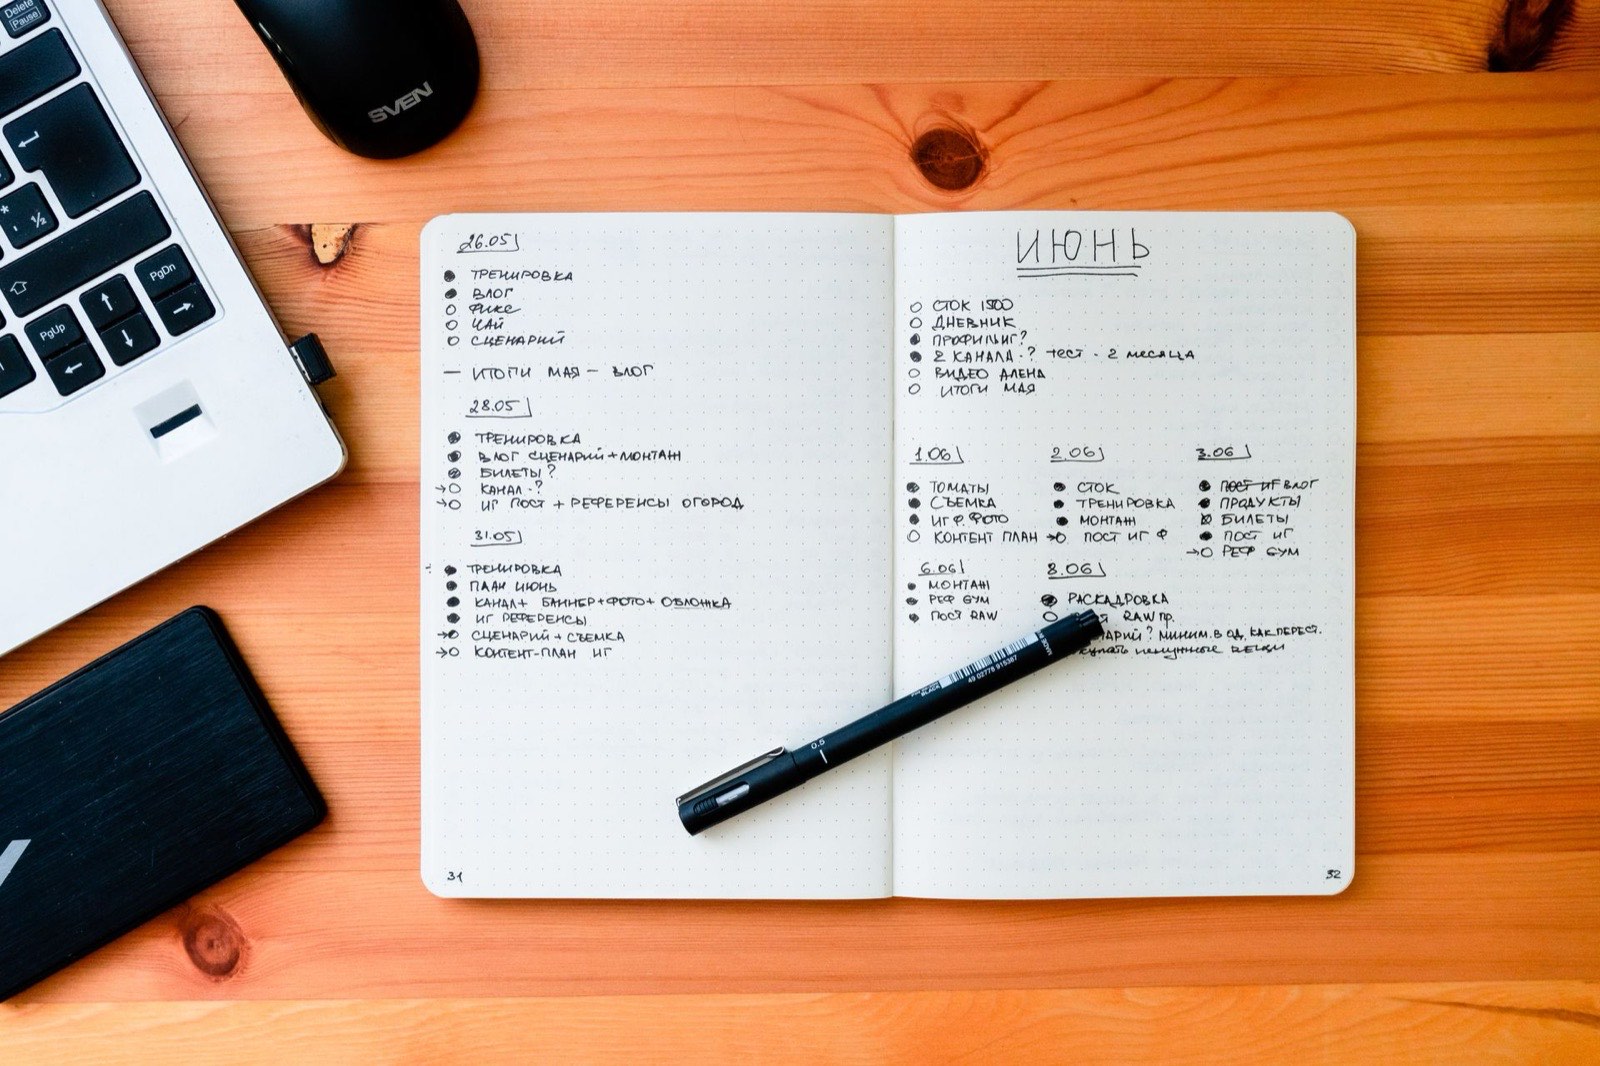 Delete
Pause
½
PgDn
PgUp
SVEN
26.05
ТРЕНИРОВКА
ВЛОГ
ФИКС
ЧАЙ
СЦЕНАРИЙ
— ИТОГИ МАЯ — ВЛОГ
28.05
ТРЕНИРОВКА
ВЛОГ СЦЕНАРИЙ + МОНТАЖ
БИЛЕТЫ?
→ КАНАЛ -?
→ ИГ ПОСТ + РЕФЕРЕНСЫ ОГОРОД
31.05
ТРЕНИРОВКА
ПЛАН ИЮНЬ
КАНАЛ + БАННЕР + ФОТО + ОБЛОЖКА
ИГ РЕФЕРЕНСЫ
→ СЦЕНАРИЙ + СЪЕМКА
→ КОНТЕНТ-ПЛАН ИГ
31
ИЮНЬ
СТОК 1500
ДНЕВНИК
ПРОФИЛЬ ИГ?
2 КАНАЛА -? ТЕСТ - 2 МЕСЯЦА
ВИДЕО АЛЕНА
ИТОГИ МАЯ
1.06
ТОМАТЫ
СЪЕМКА
ИГ Ф. ФОТО
КОНТЕНТ ПЛАН
2.06
СТОК
ТРЕНИРОВКА
МОНТАЖ
→ ПОСТ ИГ Ф
3.06
ПОСТ ИГ ВЛОГ
ПРОДУКТЫ
БИЛЕТЫ
ПОСТ ИГ
→ РЕФ GYM
6.06
МОНТАЖ
РЕФ GYM
ПОСТ RAW
8.06
РАСКАДРОВКА
RAW ПР.
? МИНИМ. В ОД. КАК ПЕРЕСТ.
НЕНУЖНЫЕ ВЕЩИ
0.5
BLACK
49 02778 915387
MADE
32